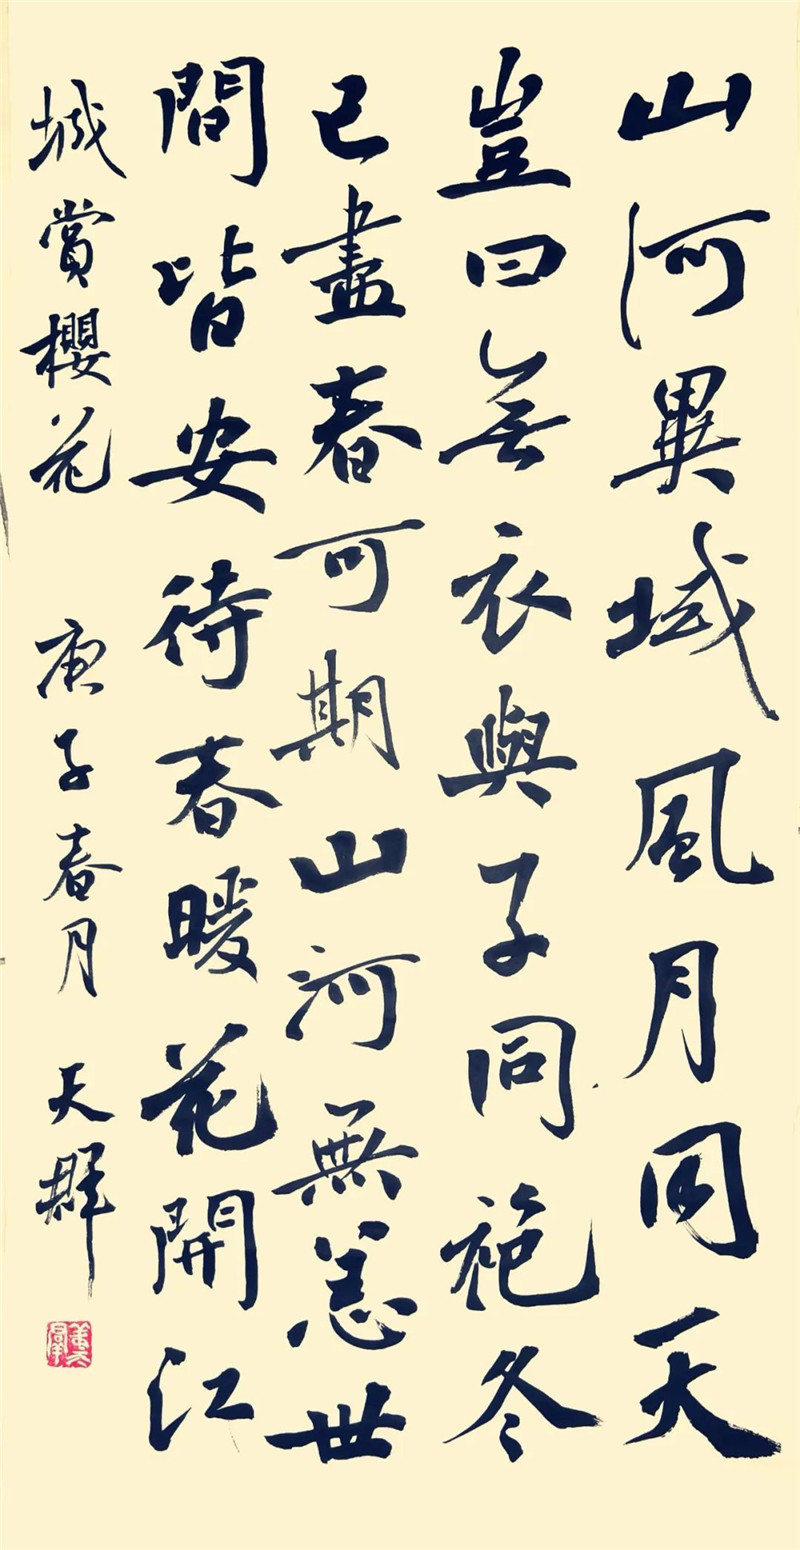 山河異域風月同天
豈曰無衣與子同袍冬
已盡春可期山河無恙世
間皆安待春暖花開江
城賞櫻花 庚子春月 天群